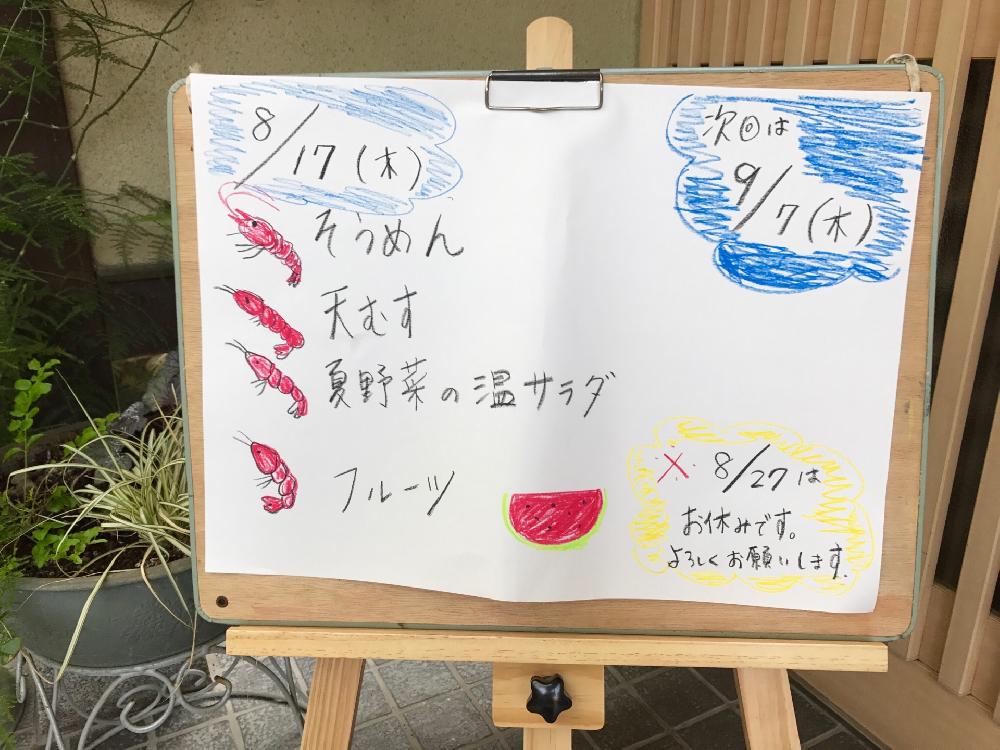 8/17(木)
そうめん
天むす
夏野菜の温サラダ
フルーツ
次回は
9/7(木)
※ 8/27は
お休みです。
よろしくお願いします.